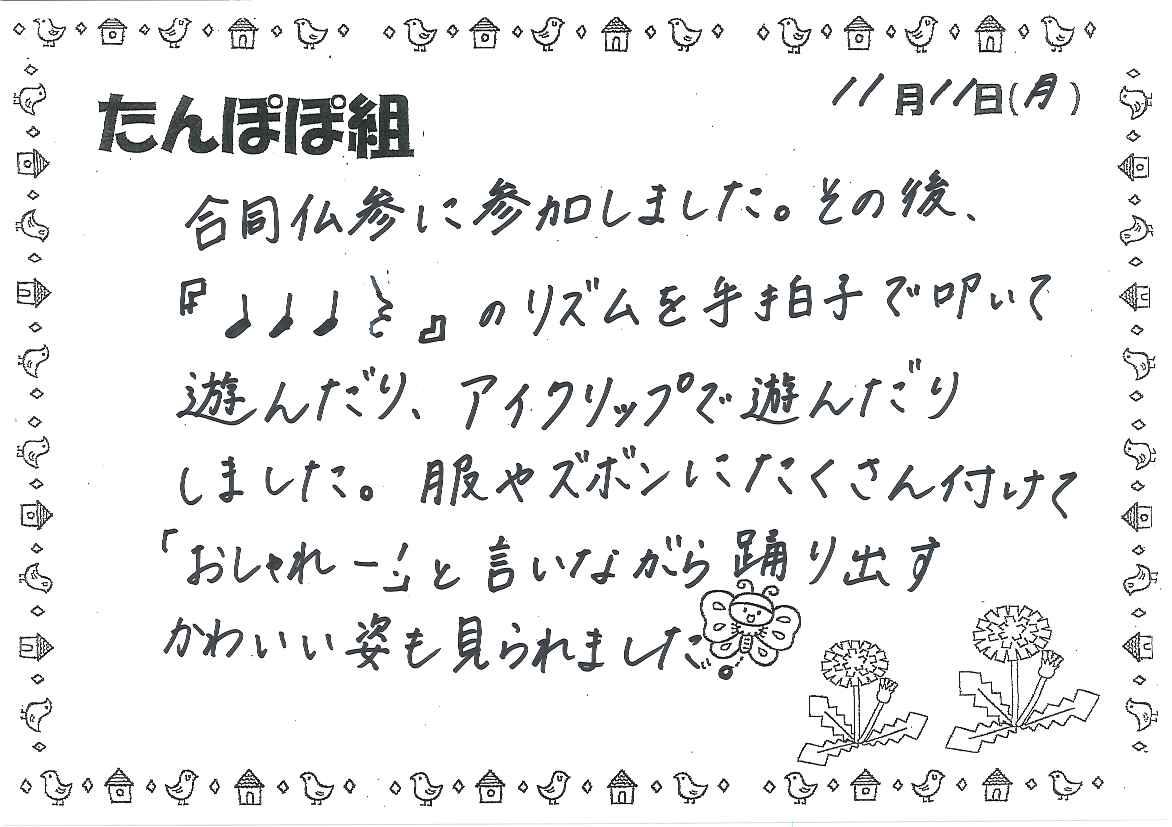 たんぽぽ組
11月11日(月)
合同仏参に参加しました。その後、
『♩♩♩𝄽』のリズムを手拍子で叩いて
遊んだり、アイクリップで遊んだり
しました。服やズボンにたくさん付けて
「おしゃれー!」と言いながら踊り出す
かわいい姿も見られました。